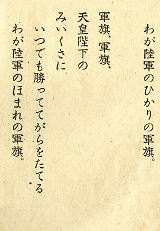 わが陸軍のひかりの軍旗。
軍旗、軍旗、
天皇陛下の
みいくさに
いつでも勝っててがらをたてる
わが陸軍のほまれの軍旗。